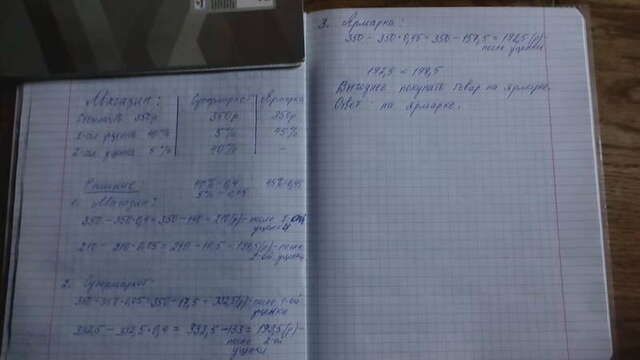 Магазин: Супермаркет Ярмарка
Стоимость 350р 350р 350р
1-ая уценка 40% 5% 45%
2-ая уценка 5% 40% -
Решение: 40% = 0,4 45% = 0,45
5% = 0,05
1. Магазин:
350 - 350·0,4 = 350 - 140 = 210 (р) - после 1-ой
уценки
210 - 210·0,05 = 210 - 10,5 = 199,5 (р) - после
2-ой уценки
2. Супермаркет
350 - 350·0,05 = 350 - 17,5 = 332,5 (р) - после 1-ой
уценки
332,5 - 332,5·0,4 = 332,5 - 133 = 199,5 (р) -
после 2-й
уценки
3. Ярмарка:
350 - 350·0,45 = 350 - 157,5 = 192,5 (р) -
после уценки
192,5 < 199,5
Выгоднее покупать товар на ярмарке.
Ответ: на ярмарке.